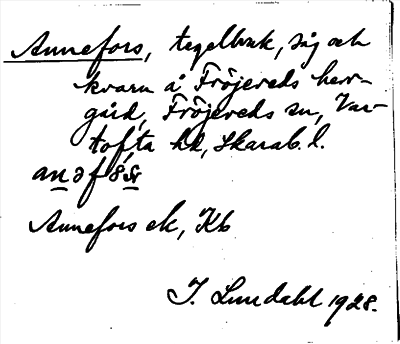 Annefors, tegelbruk, såg och
kvarn å Fröjereds herr-
gård, Fröjereds sn, Var-
tofta hd, Skarab. l.
Annefors ek, Kb
I. Lundahl 1928.